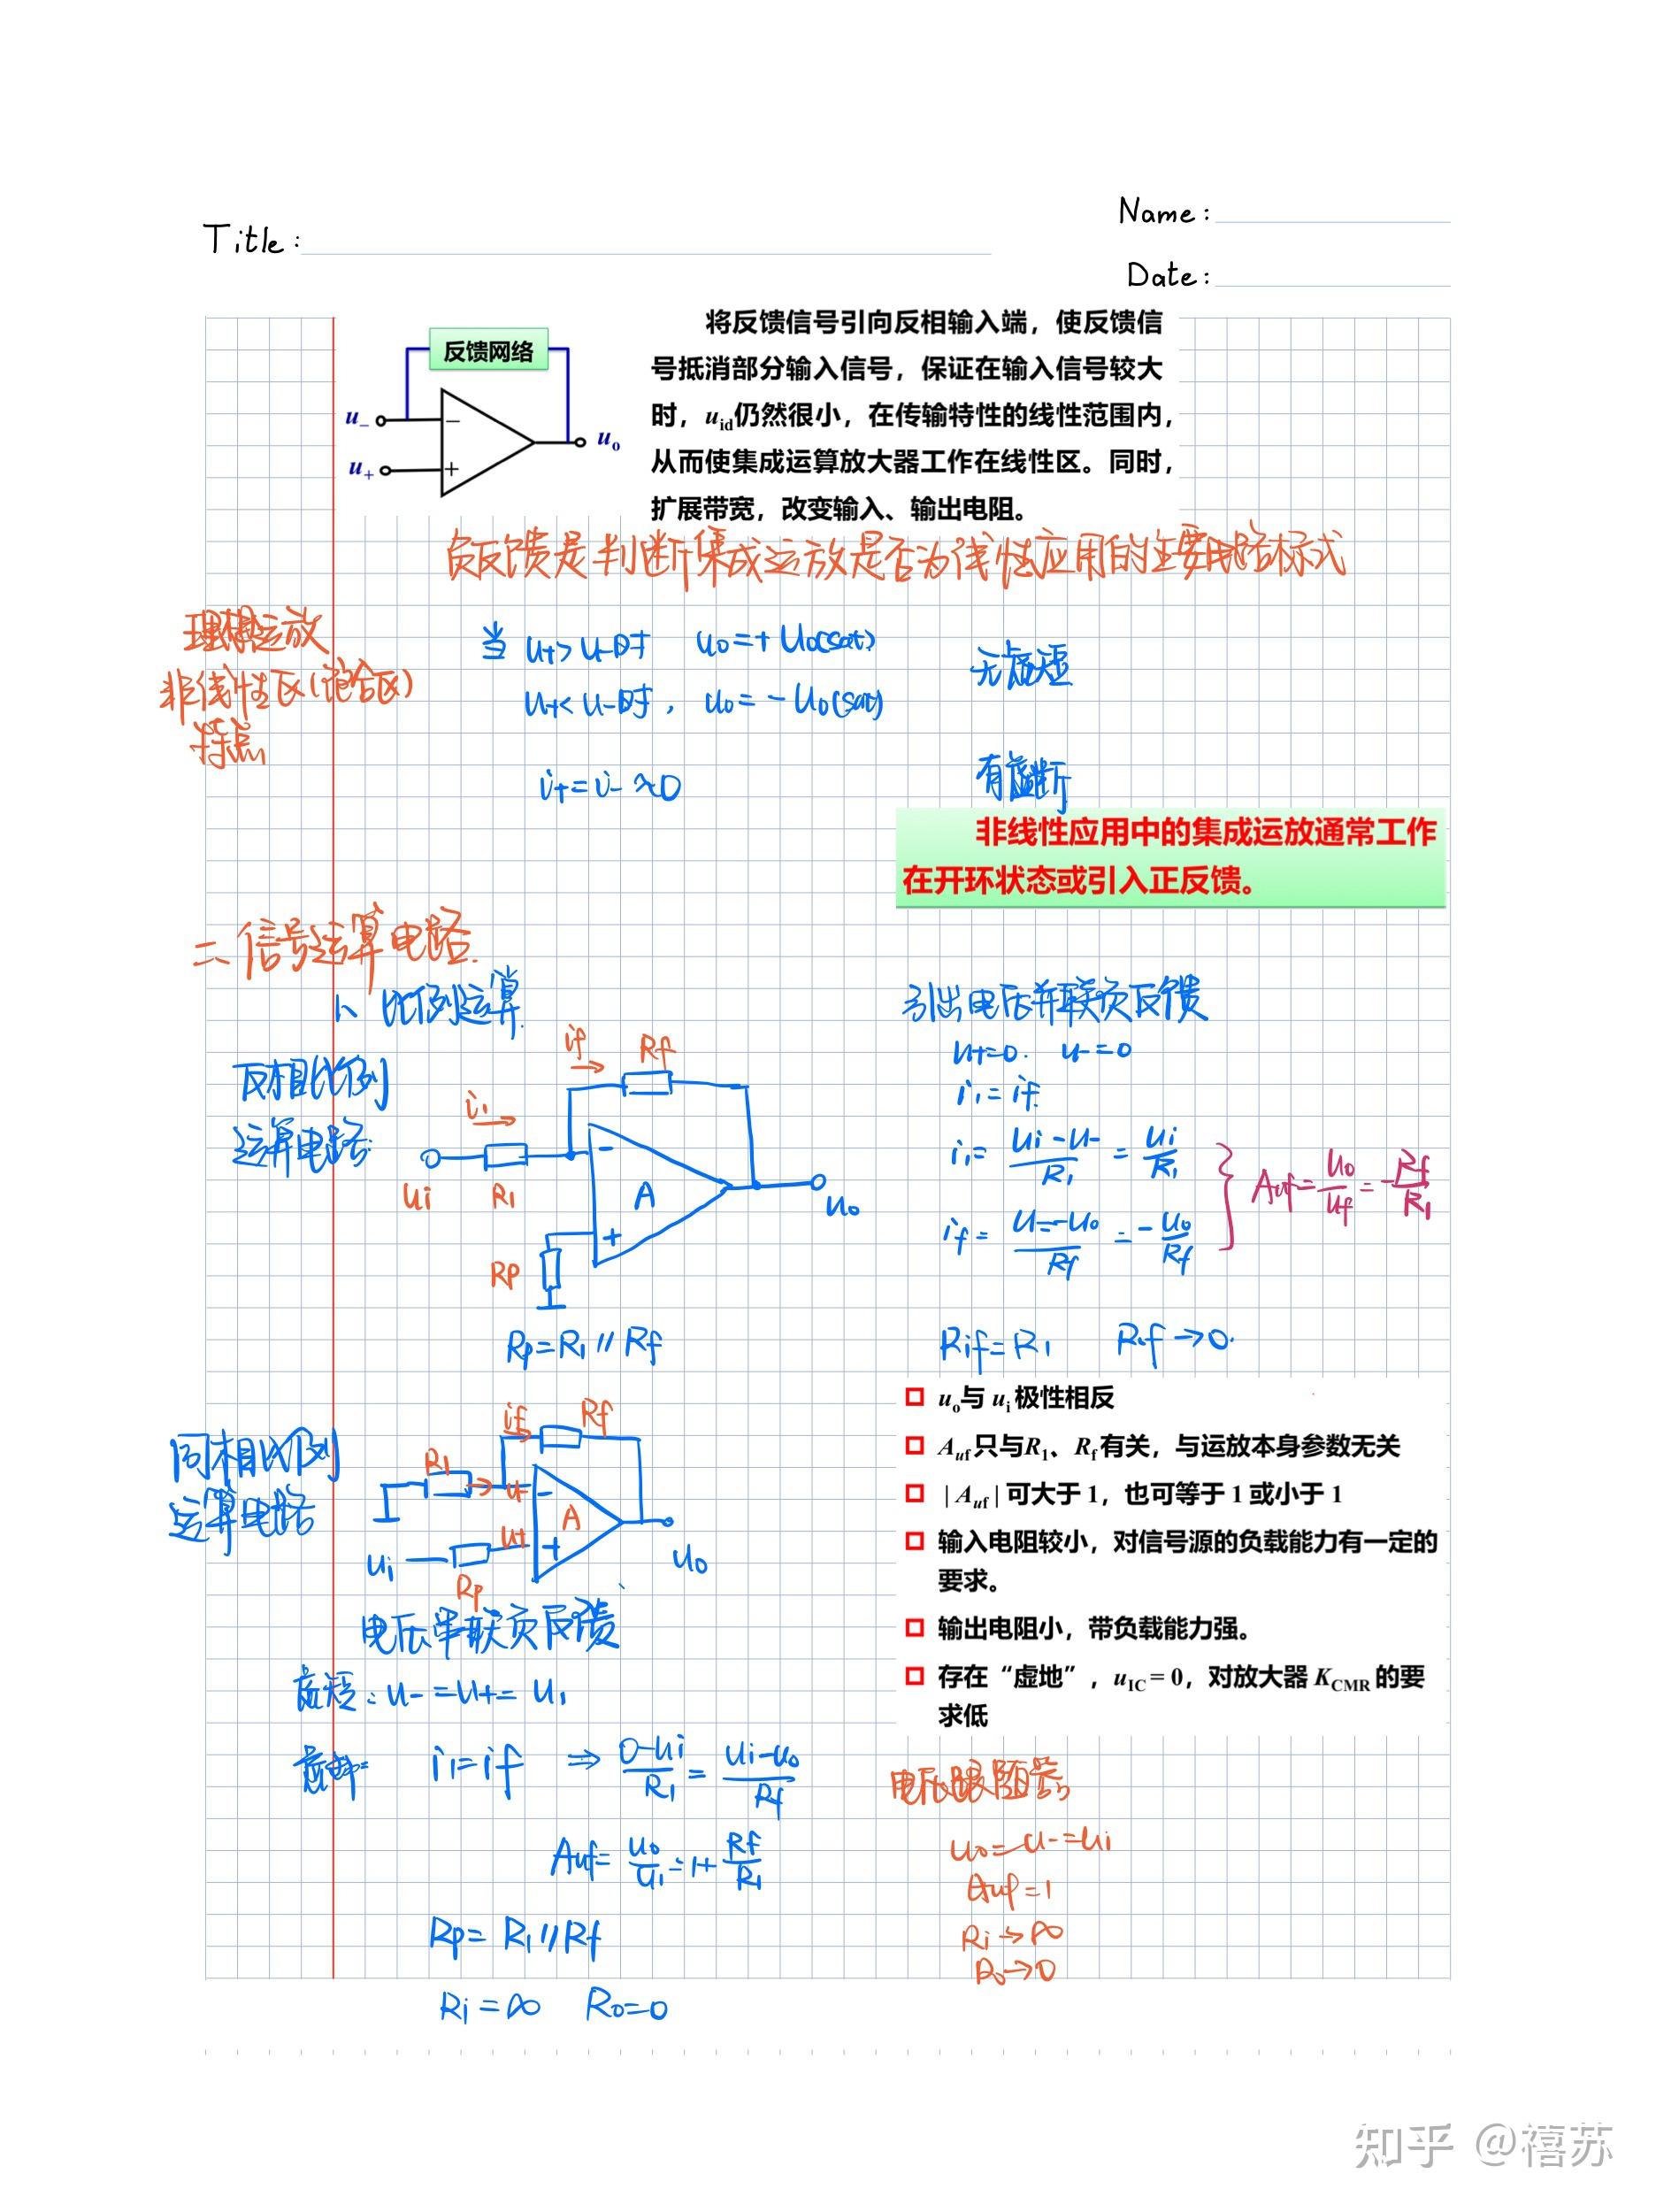 Name:
Title:
Date:
反馈网络
u₋
u₊
−
+
uₒ
将反馈信号引向反相输入端，使反馈信
号抵消部分输入信号，保证在输入信号较大
时，u_id仍然很小，在传输特性的线性范围内，
从而使集成运算放大器工作在线性区。同时，
扩展带宽，改变输入、输出电阻。
负反馈是判断集成运放是否为线性应用的主要电路标式
理想运放
非线性区(饱合区)
特点
当 u+>u-时 uo=+Uo(sat)
u+<u-时, uo=-Uo(sat)
无虚短
i+=i-≈0
有虚断
非线性应用中的集成运放通常工作
在开环状态或引入正反馈。
二、信号运算电路.
1、比例运算
反相比例
运算电路:
if
Rf
i1
ui
R1
-
A
+
uo
Rp
Rp=R1//Rf
引出电压并联负反馈
u+=0. u-=0
i1=if
i1=(ui-u-)/R1=ui/R1
if=(u--uo)/Rf=-uo/Rf
Auf=uo/uf=-Rf/R1
Rif=R1 Rif→0.
uo与 ui 极性相反
Auf 只与R1、Rf 有关，与运放本身参数无关
|Auf| 可大于 1，也可等于 1 或小于 1
输入电阻较小，对信号源的负载能力有一定的
要求。
输出电阻小，带负载能力强。
存在“虚地”，uIC = 0，对放大器 KCMR 的要
求低
同相比例
运算电路
if
Rf
R1
u-
-
A
u+
+
ui
Rp
uo
电压串联负反馈
虚短:u-=u+=ui
虚断: i1=if ⇒ (0-ui)/R1=(ui-uo)/Rf
Auf=uo/ui=1+Rf/R1
Rp=R1//Rf
Ri=∞ Ro=0
电压跟随器
uo=u-=ui
Auf=1
Ri→∞
Ro→0
知乎 @禧苏